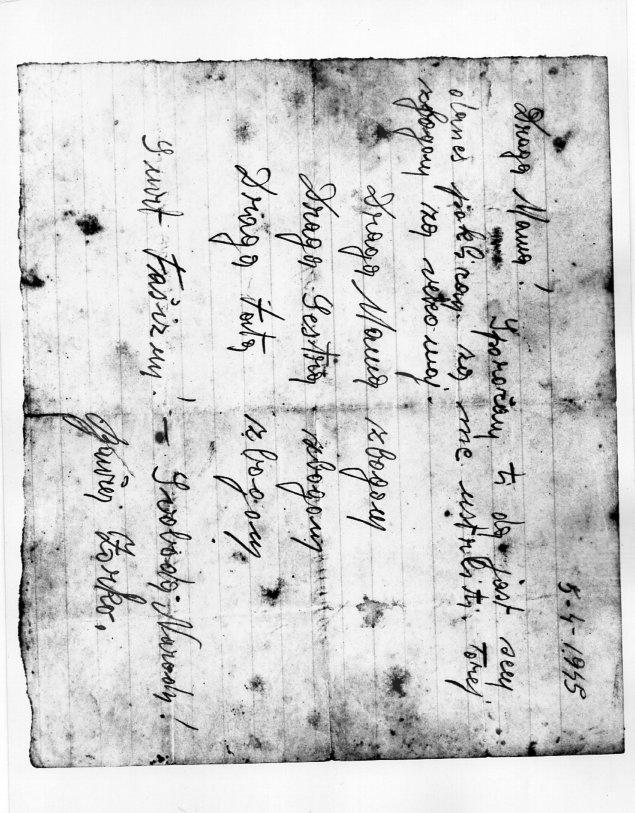 5-4-1945
Draga Mama!
Sporočam ti da jast sem
danes poklican za me ustreliti torej
zbogom za vekomaj.
Draga Mama zbogom
Draga Sestra zbogom
Dragi tata zbogom
Smrt Fašizmu! – Svoboda Narodu!
Zorko.